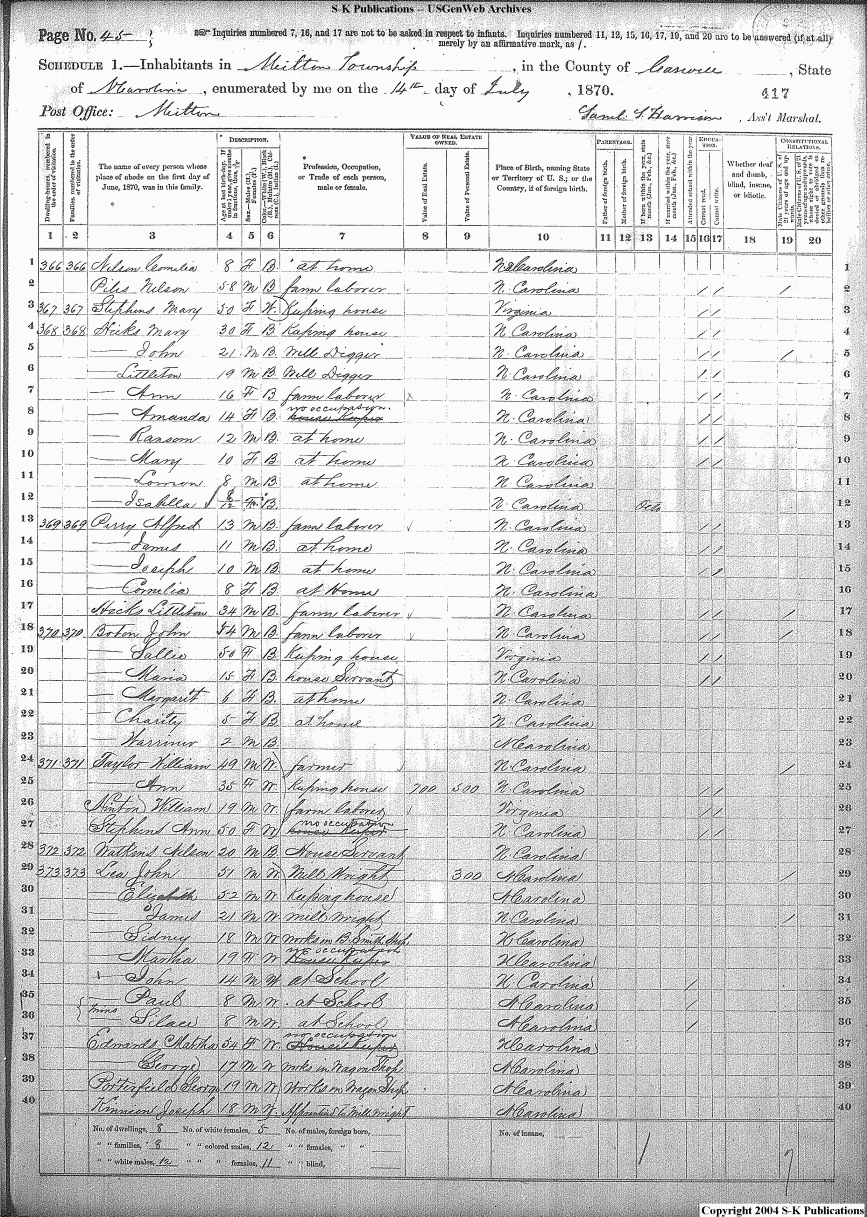 S-K Publications -- USGenWeb Archives
Page No. 45
Inquiries numbered 7, 16, and 17 are not to be asked in respect to infants. Inquiries numbered 11, 12, 15, 16, 17, 19, and 20 are to be answered (if at all) merely by an affirmative mark, as /.
SCHEDULE 1.—Inhabitants in Milton Township, in the County of Caswell, State
of N Carolina, enumerated by me on the 14th day of July, 1870.
417
Post Office: Milton
Saml. S. Harrison, Ass't Marshal.
Dwelling-houses, numbered in the order of visitation.
Families, numbered in the order of visitation.
The name of every person whose place of abode on the first day of June, 1870, was in this family.
DESCRIPTION.
Profession, Occupation, or Trade of each person, male or female.
VALUE OF REAL ESTATE OWNED.
Value of Real Estate.
Value of Personal Estate.
Place of Birth, naming State or Territory of U. S.; or the Country, if of foreign birth.
PARENTAGE.
Father of foreign birth.
Mother of foreign birth.
EDUCATION.
Cannot read.
Cannot write.
Whether deaf and dumb, blind, insane, or idiotic.
CONSTITUTIONAL RELATIONS.
1 2 3 4 5 6 7 8 9 10 11 12 13 14 15 16 17 18 19 20
1 366 366 Nelson Cornelia 8 F B at home N Carolina 1
2 Piles Nelson 58 M B farm laborer N. Carolina / / / 2
3 367 367 Stephens Mary 50 F W Keeping house Virginia / / 3
4 368 368 Hicks Mary 30 F B Keeping house N. Carolina / / 4
5 — John 21 M B Well Digger N. Carolina / / / 5
6 Littleton 19 M B Well Digger N. Carolina / / 6
7 — Ann 16 F B farm laborer N. Carolina / / 7
8 — Amanda 14 F B no occupation N. Carolina / / 8
9 — Ransom 12 M B at home N. Carolina / / 9
10 — Mary 10 F B at home N. Carolina / / 10
11 — 8 M B at home N. Carolina 11
12 — Isabella 8/12 F B N. Carolina Oct 12
13 369 369 Perry Alfred 13 M B farm laborer N. Carolina / / 13
14 — James 11 M B at home N. Carolina / / 14
15 — Joseph 10 M B at home N. Carolina / / 15
16 — Cornelia 8 F B at Home N. Carolina 16
17 Hicks Littleton 34 M B farm laborer N. Carolina / / / 17
18 370 370 John 54 M B farm laborer N. Carolina / / / 18
19 — Sallie 50 F B Keeping house Virginia / / 19
20 — Maria 15 F B house Servant N. Carolina / / 20
21 — Margaret 6 F B at home N. Carolina 21
22 — Charity 5 F B at home N. Carolina 22
23 — 2 M B N Carolina 23
24 371 371 Taylor William 49 M W farmer N. Carolina / 24
25 — Ann 35 F W Keeping house 700 500 N. Carolina / / 25
26 William 19 M W farm laborer Virginia / / 26
27 Stephens Ann 50 F W no occupation N. Carolina / / 27
28 372 372 Watkins Nelson 20 M B House Servant N. Carolina 28
29 373 373 Lea John 51 M W Mill Wright 300 N Carolina / 29
30 — Elizabeth 52 M W Keeping house N Carolina 30
31 — James 21 M W mill wright N. Carolina / 31
32 — Sidney 18 M W works in B. Smith Shop N Carolina 32
33 — Martha 19 F W no occupation N Carolina 33
34 — John 14 M W at School N. Carolina / 34
35 — Paul 8 M W at School N Carolina / 35
twins
36 — Silace 8 M W at School N Carolina / 36
37 Edwards Martha 54 F W no occupation N Carolina 37
38 — George 17 M W works in Wagon Shop N Carolina 38
39 Porterfield George 19 M W Works in Wagon Shop N Carolina 39
40 Kinnion Joseph 18 M W Apprentice to Mill wright N Carolina 40
No. of dwellings, 8 No. of white females, 5 No. of males, foreign born, No. of insane,
" " families, 8 " " colored males, 12 " " females, " "
" " white males, 12 " " " females, 11 " " blind,
Copyright 2004 S-K Publications